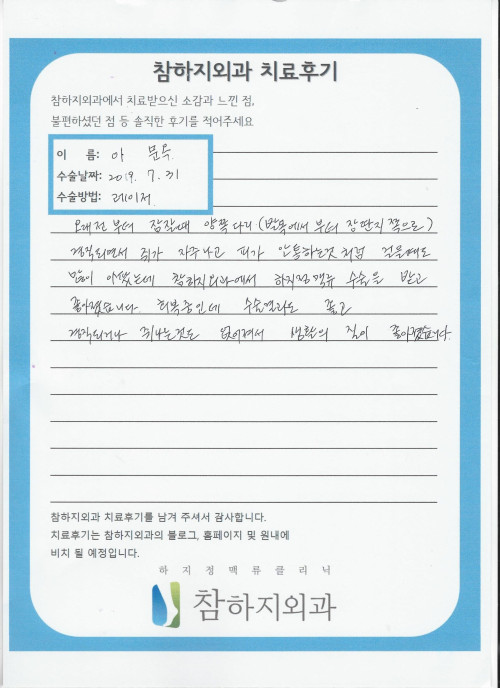 참하지외과 치료후기
참하지외과에서 치료받으신 소감과 느낀 점,
불편하셨던 점 등 솔직한 후기를 적어주세요
이 름:
수술날짜: 2019. 7. 31
수술방법: 레이저
오래전 부터 잠잘때 양쪽 다리 (발목에서 부터 장딴지 쪽으로)
경직되면서 쥐가 자주나고 피가 안통하는것 처럼 걸을때도
많이 아팠는데 참하지외과에서 하지정맥류 수술을 받고
좋아졌습니다. 회복중인데 수술결과도 좋고
경직되거나 쥐나는것도 없어져서 생활의 질이 좋아졌습니다.
참하지외과 치료후기를 남겨 주셔서 감사합니다.
치료후기는 참하지외과의 블로그, 홈페이지 및 원내에
비치 될 예정입니다.
하지정맥류클리닉
참하지외과